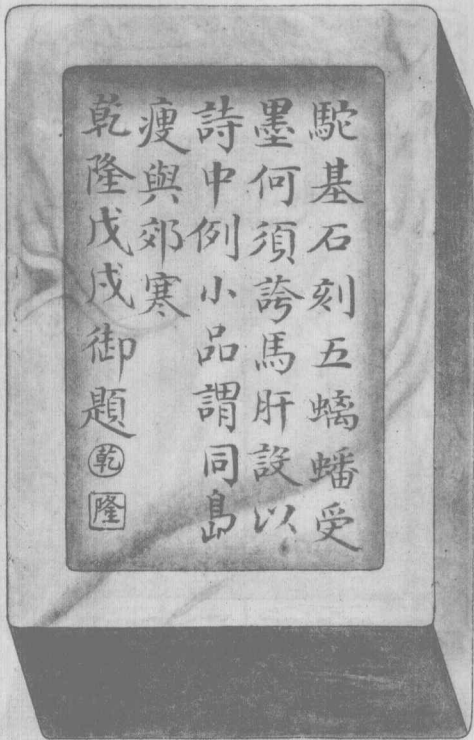 駝基石刻五螭蟠受
墨何須誇馬肝設以
詩中例小品謂同島
瘦與郊寒
乾隆戊戌御題
乾
隆